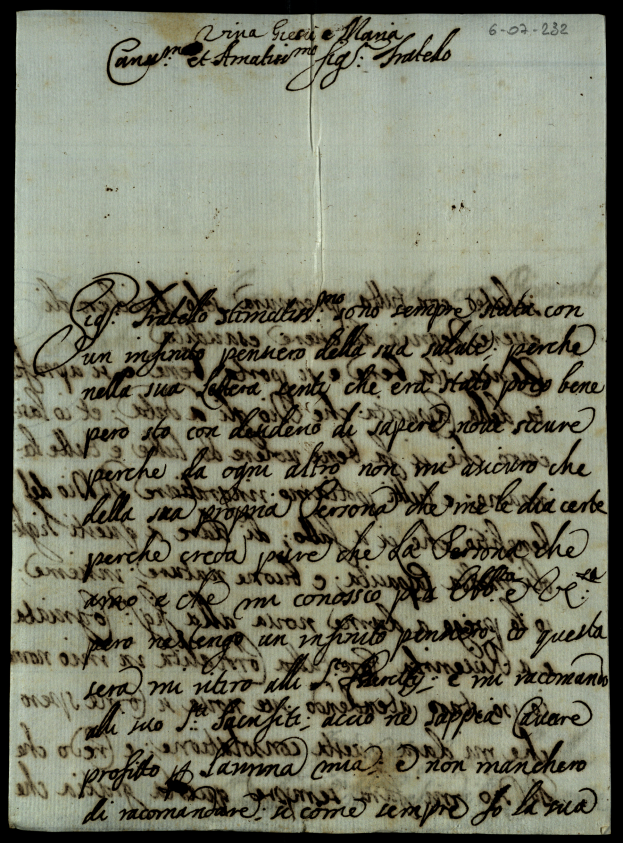 6-07-232
Viva Giesù e Maria
Cariss.mo et Amatiss.mo Sig.r Fratello
Sig.r Fratello Stimatiss.mo sono sempre stata con
un infinito pensiero della sua salute: perche
nella sua lettera senti che era stato poco bene
pero sto con desiderio di sapere nove sicure
perche da ogni altro non mi asicuro che
della sua propria Persona che me le dia certe
perche creda pure che la Persona che
amo e che mi conossco più è
pero ne tengo un infinito pensiero, io questa
sera mi ritiro alli S.ti e mi racomando
alli suo S.ti Sacrifiti: acciò ne sappia Cavare
profitto p l'anima mia: e non manchero
di racomandare si come sempre fo la sua